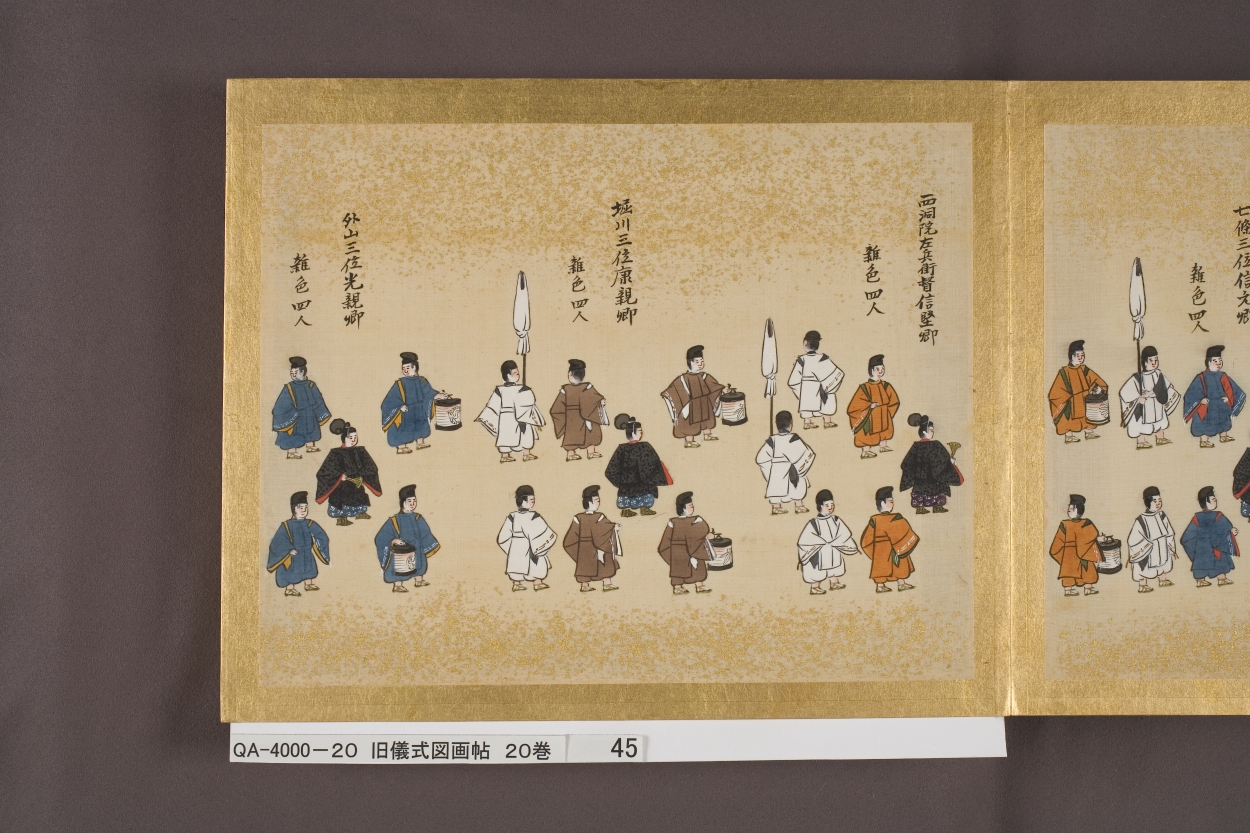 七條三位信元卿
雑色四人
西洞院左兵衛督信堅卿
雑色四人
堀川三位康親卿
雑色四人
外山三位光親卿
雑色四人
QA-4000-20 旧儀式図画帖 20巻 45